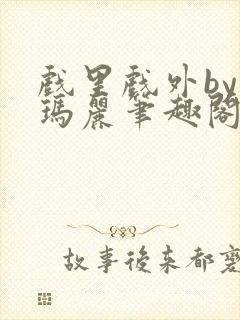 戲里戲外by
瑪麗筆趣閣
故事後來都